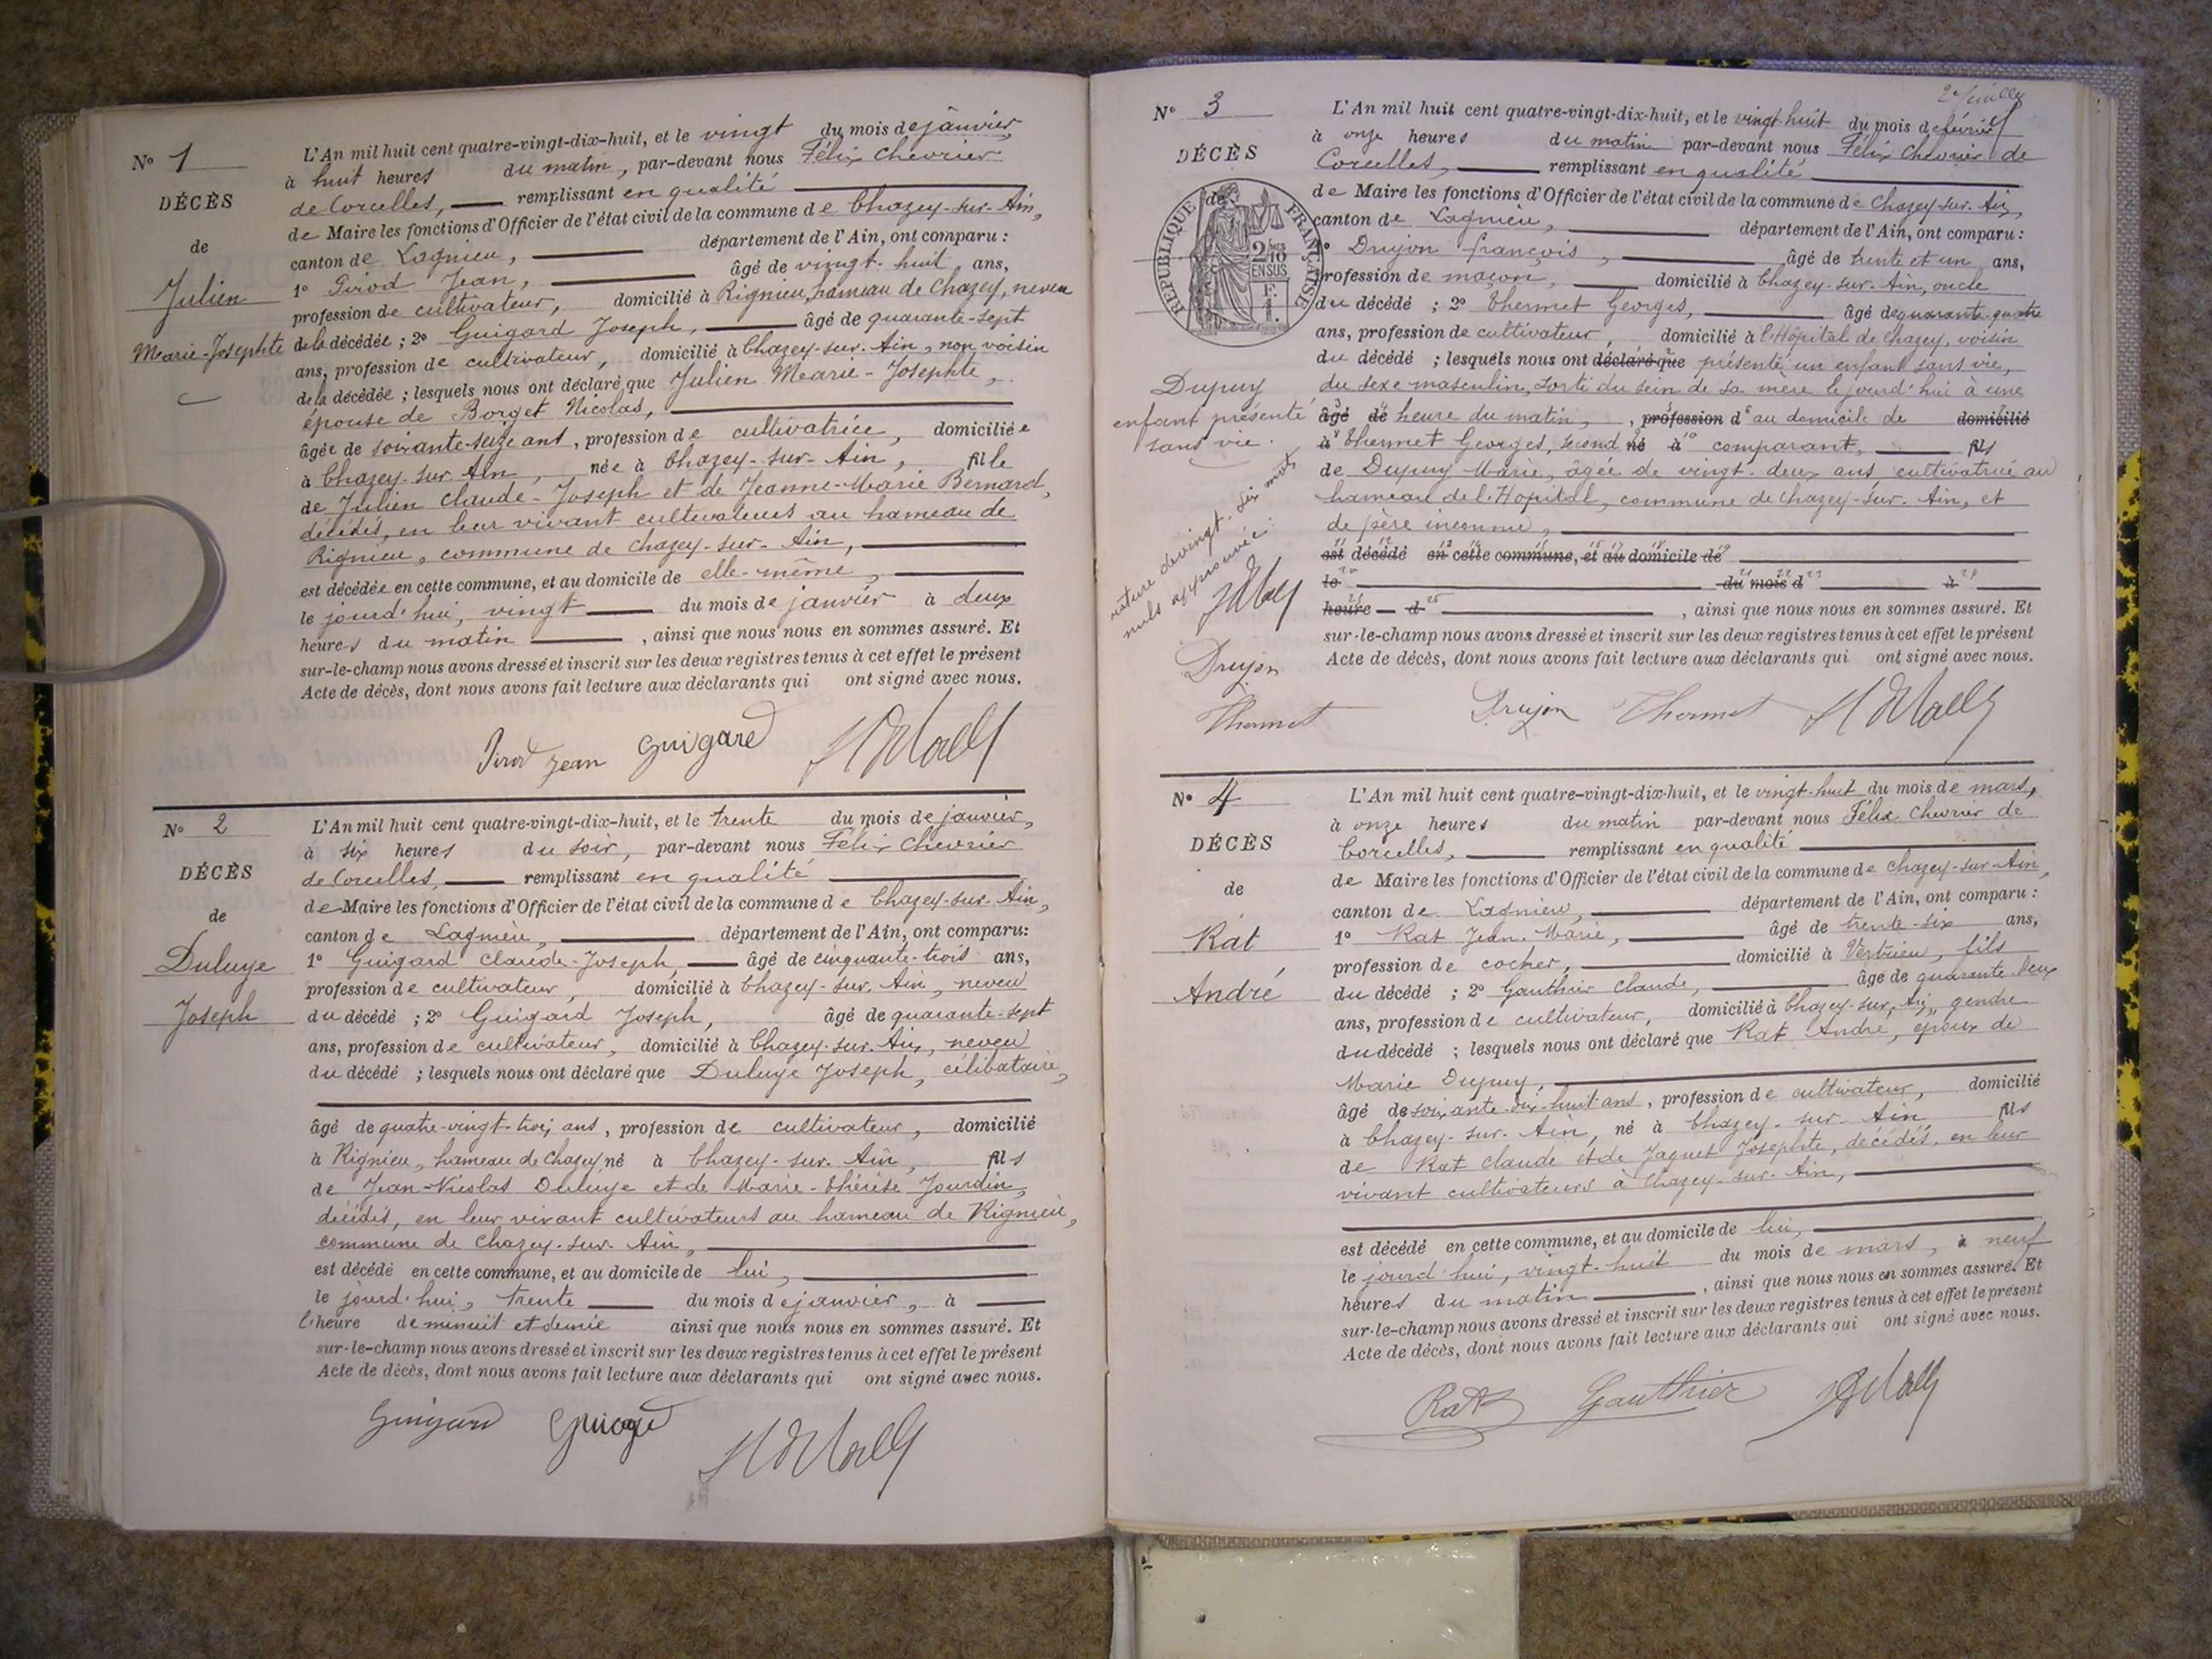 N° 1
DÉCÈS
de
Julien
Marie-Josephte
L'An mil huit cent quatre-vingt-dix-huit, et le vingt du mois de janvier,
à huit heures du matin, par-devant nous Félix Chevrier
de Corcelles, remplissant en qualité
de Maire les fonctions d'Officier de l'état civil de la commune de Chazey-sur-Ain,
canton de Lagnieu, département de l'Ain, ont comparu :
1° Girod Jean, âgé de vingt-huit ans,
profession de cultivateur, domicilié à Rignieu, hameau de Chazey, neveu
de la décédée ; 2° Guigard Joseph, âgé de quarante-sept
ans, profession de cultivateur, domicilié à Chazey-sur-Ain, non voisin
de la décédée ; lesquels nous ont déclaré que Julien Marie-Josephte,
épouse de Borget Nicolas,
âgée de soixante-seize ans, profession de cultivatrice, domiciliée
à Chazey-sur-Ain, née à Chazey-sur-Ain, fille
de Julien Claude-Joseph et de Jeanne-Marie Bernard,
décédés, en leur vivant cultivateurs au hameau de
Rignieu, commune de Chazey-sur-Ain,
est décédée en cette commune, et au domicile de elle-même,
le jourd'hui, vingt du mois de janvier à deux
heures du matin, ainsi que nous nous en sommes assuré. Et
sur-le-champ nous avons dressé et inscrit sur les deux registres tenus à cet effet le présent
Acte de décès, dont nous avons fait lecture aux déclarants qui ont signé avec nous.
Girod Jean Guigard
N° 2
DÉCÈS
de
Duluye
Joseph
L'An mil huit cent quatre-vingt-dix-huit, et le trente du mois de janvier,
à six heures du soir, par-devant nous Félix Chevrier
de Corcelles, remplissant en qualité
de Maire les fonctions d'Officier de l'état civil de la commune de Chazey-sur-Ain,
canton de Lagnieu, département de l'Ain, ont comparu :
1° Guigard Claude-Joseph, âgé de cinquante-trois ans,
profession de cultivateur, domicilié à Chazey-sur-Ain, neveu
du décédé ; 2° Guigard Joseph, âgé de quarante-sept
ans, profession de cultivateur, domicilié à Chazey-sur-Ain, neveu
du décédé ; lesquels nous ont déclaré que Duluye Joseph, célibataire,
âgé de quatre-vingt-trois ans, profession de cultivateur, domicilié
à Rignieu, hameau de Chazey, né à Chazey-sur-Ain, fils
de Jean-Nicolas Duluye et de Marie-Thérèse Jourdin,
décédés, en leur vivant cultivateurs au hameau de Rignieu,
commune de Chazey-sur-Ain,
est décédé en cette commune, et au domicile de lui,
le jourd'hui, trente du mois de janvier, à
l'heure de minuit et demie ainsi que nous nous en sommes assuré. Et
sur-le-champ nous avons dressé et inscrit sur les deux registres tenus à cet effet le présent
Acte de décès, dont nous avons fait lecture aux déclarants qui ont signé avec nous.
Guigard
2e feuille
N° 3
DÉCÈS
de
RÉPUBLIQUE FRANÇAISE
2/10 EN SUS
Dupuy
enfant présenté
sans vie.
rature de vingt-six mots
nuls approuvée :
Drujon
Thermet
L'An mil huit cent quatre-vingt-dix-huit, et le vingt-huit du mois de février
à onze heures du matin par-devant nous Félix Chevrier de
Corcelles, remplissant en qualité
de Maire les fonctions d'Officier de l'état civil de la commune de Chazey-sur-Ain,
canton de Lagnieu, département de l'Ain, ont comparu :
1° Drujon François, âgé de trente et un ans,
profession de maçon, domicilié à Chazey-sur-Ain, oncle
du décédé ; 2° Thermet Georges, âgé de quarante-quatre
ans, profession de cultivateur, domicilié à l'Hôpital de Chazey, voisin
du décédé ; lesquels nous ont déclaré que présenté un enfant sans vie,
du sexe masculin, sorti du sein de sa mère le jourd'hui à une
âgé de heure du matin, profession d au domicile de domicilié
à Thermet Georges, second né à comparant, fils
de Dupuy Marie, âgée de vingt-deux ans cultivatrice au
hameau de l'Hopital, commune de Chazey-sur-Ain, et
de père inconnu,
est décédé en cette commune, et au domicile de
le du mois d à
heure d , ainsi que nous nous en sommes assuré. Et
sur-le-champ nous avons dressé et inscrit sur les deux registres tenus à cet effet le présent
Acte de décès, dont nous avons fait lecture aux déclarants qui ont signé avec nous.
Drujon Thermet
N° 4
DÉCÈS
de
Rat
André
L'An mil huit cent quatre-vingt-dix-huit, et le vingt-huit du mois de mars,
à onze heures du matin par-devant nous Félix Chevrier de
Corcelles, remplissant en qualité
de Maire les fonctions d'Officier de l'état civil de la commune de Chazey-sur-Ain,
canton de Lagnieu, département de l'Ain, ont comparu :
1° Rat Jean-Marie, âgé de trente-six ans,
profession de cocher, domicilié à Vertrieu, fils
du décédé ; 2° Gauthier Claude, âgé de quarante-deux
ans, profession de cultivateur, domicilié à Chazey-sur-Ain, gendre
du décédé ; lesquels nous ont déclaré que Rat André, époux de
Marie Dupuy,
âgé de soixante-dix-huit ans, profession de cultivateur, domicilié
à Chazey-sur-Ain, né à Chazey-sur-Ain fils
de Rat Claude et de Jaquet Josephte, décédés, en leur
vivant cultivateurs à Chazey-sur-Ain,
est décédé en cette commune, et au domicile de lui,
le jourd'hui, vingt-huit du mois de mars, à neuf
heures du matin, ainsi que nous nous en sommes assuré. Et
sur-le-champ nous avons dressé et inscrit sur les deux registres tenus à cet effet le présent
Acte de décès, dont nous avons fait lecture aux déclarants qui ont signé avec nous.
Rat Gauthier